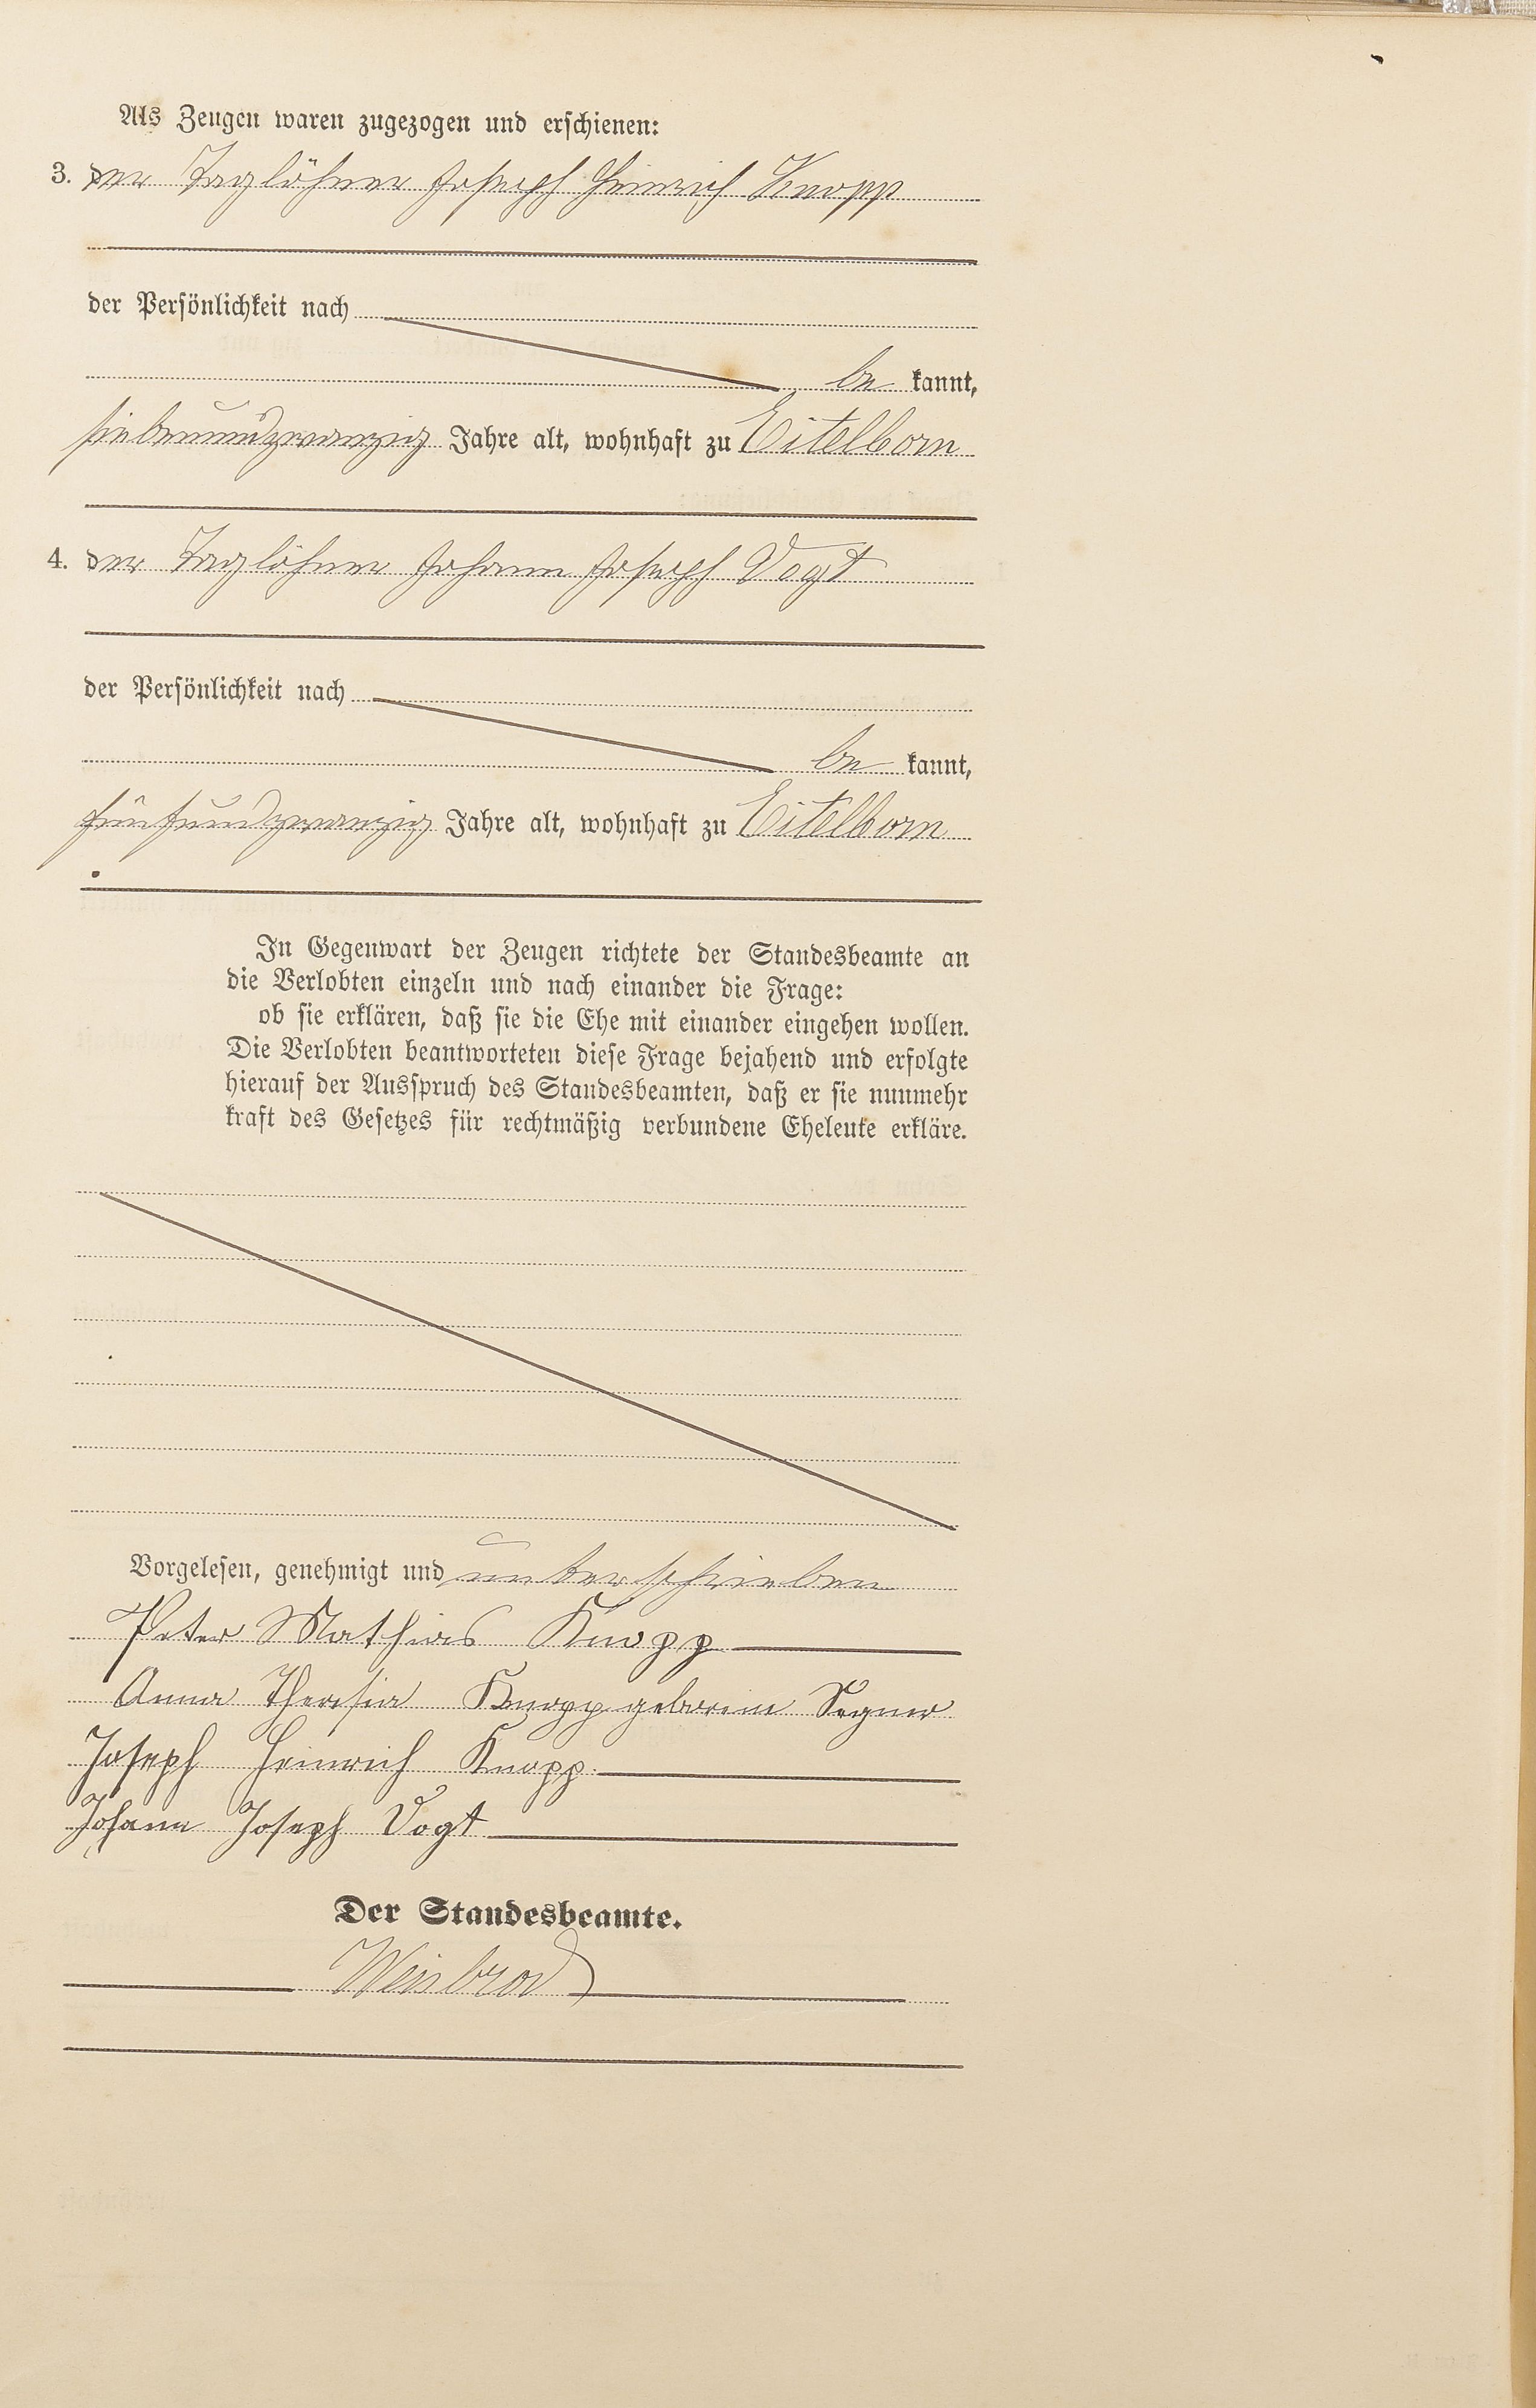 Als Zeugen waren zugezogen und erschienen:
3. der Taglöhner Joseph Heinrich Knopp
der Persönlichkeit nach
be kannt,
siebenundzwanzig Jahre alt, wohnhaft zu Eitelborn
4. der Taglöhner Johann Joseph Vogt
der Persönlichkeit nach
be kannt,
fünfundzwanzig Jahre alt, wohnhaft zu Eitelborn
In Gegenwart der Zeugen richtete der Standesbeamte an
die Verlobten einzeln und nach einander die Frage:
ob sie erklären, daß sie die Ehe mit einander eingehen wollen.
Die Verlobten beantworteten diese Frage bejahend und erfolgte
hierauf der Ausspruch des Standesbeamten, daß er sie nunmehr
kraft des Gesetzes für rechtmäßig verbundene Eheleute erkläre.
Vorgelesen, genehmigt und unterschrieben
Peter Mathias Knopp
Anna Theresia Knopp geborene Segner
Joseph Heinrich Knopp
Johann Joseph Vogt
Der Standesbeamte.
Weisbrod